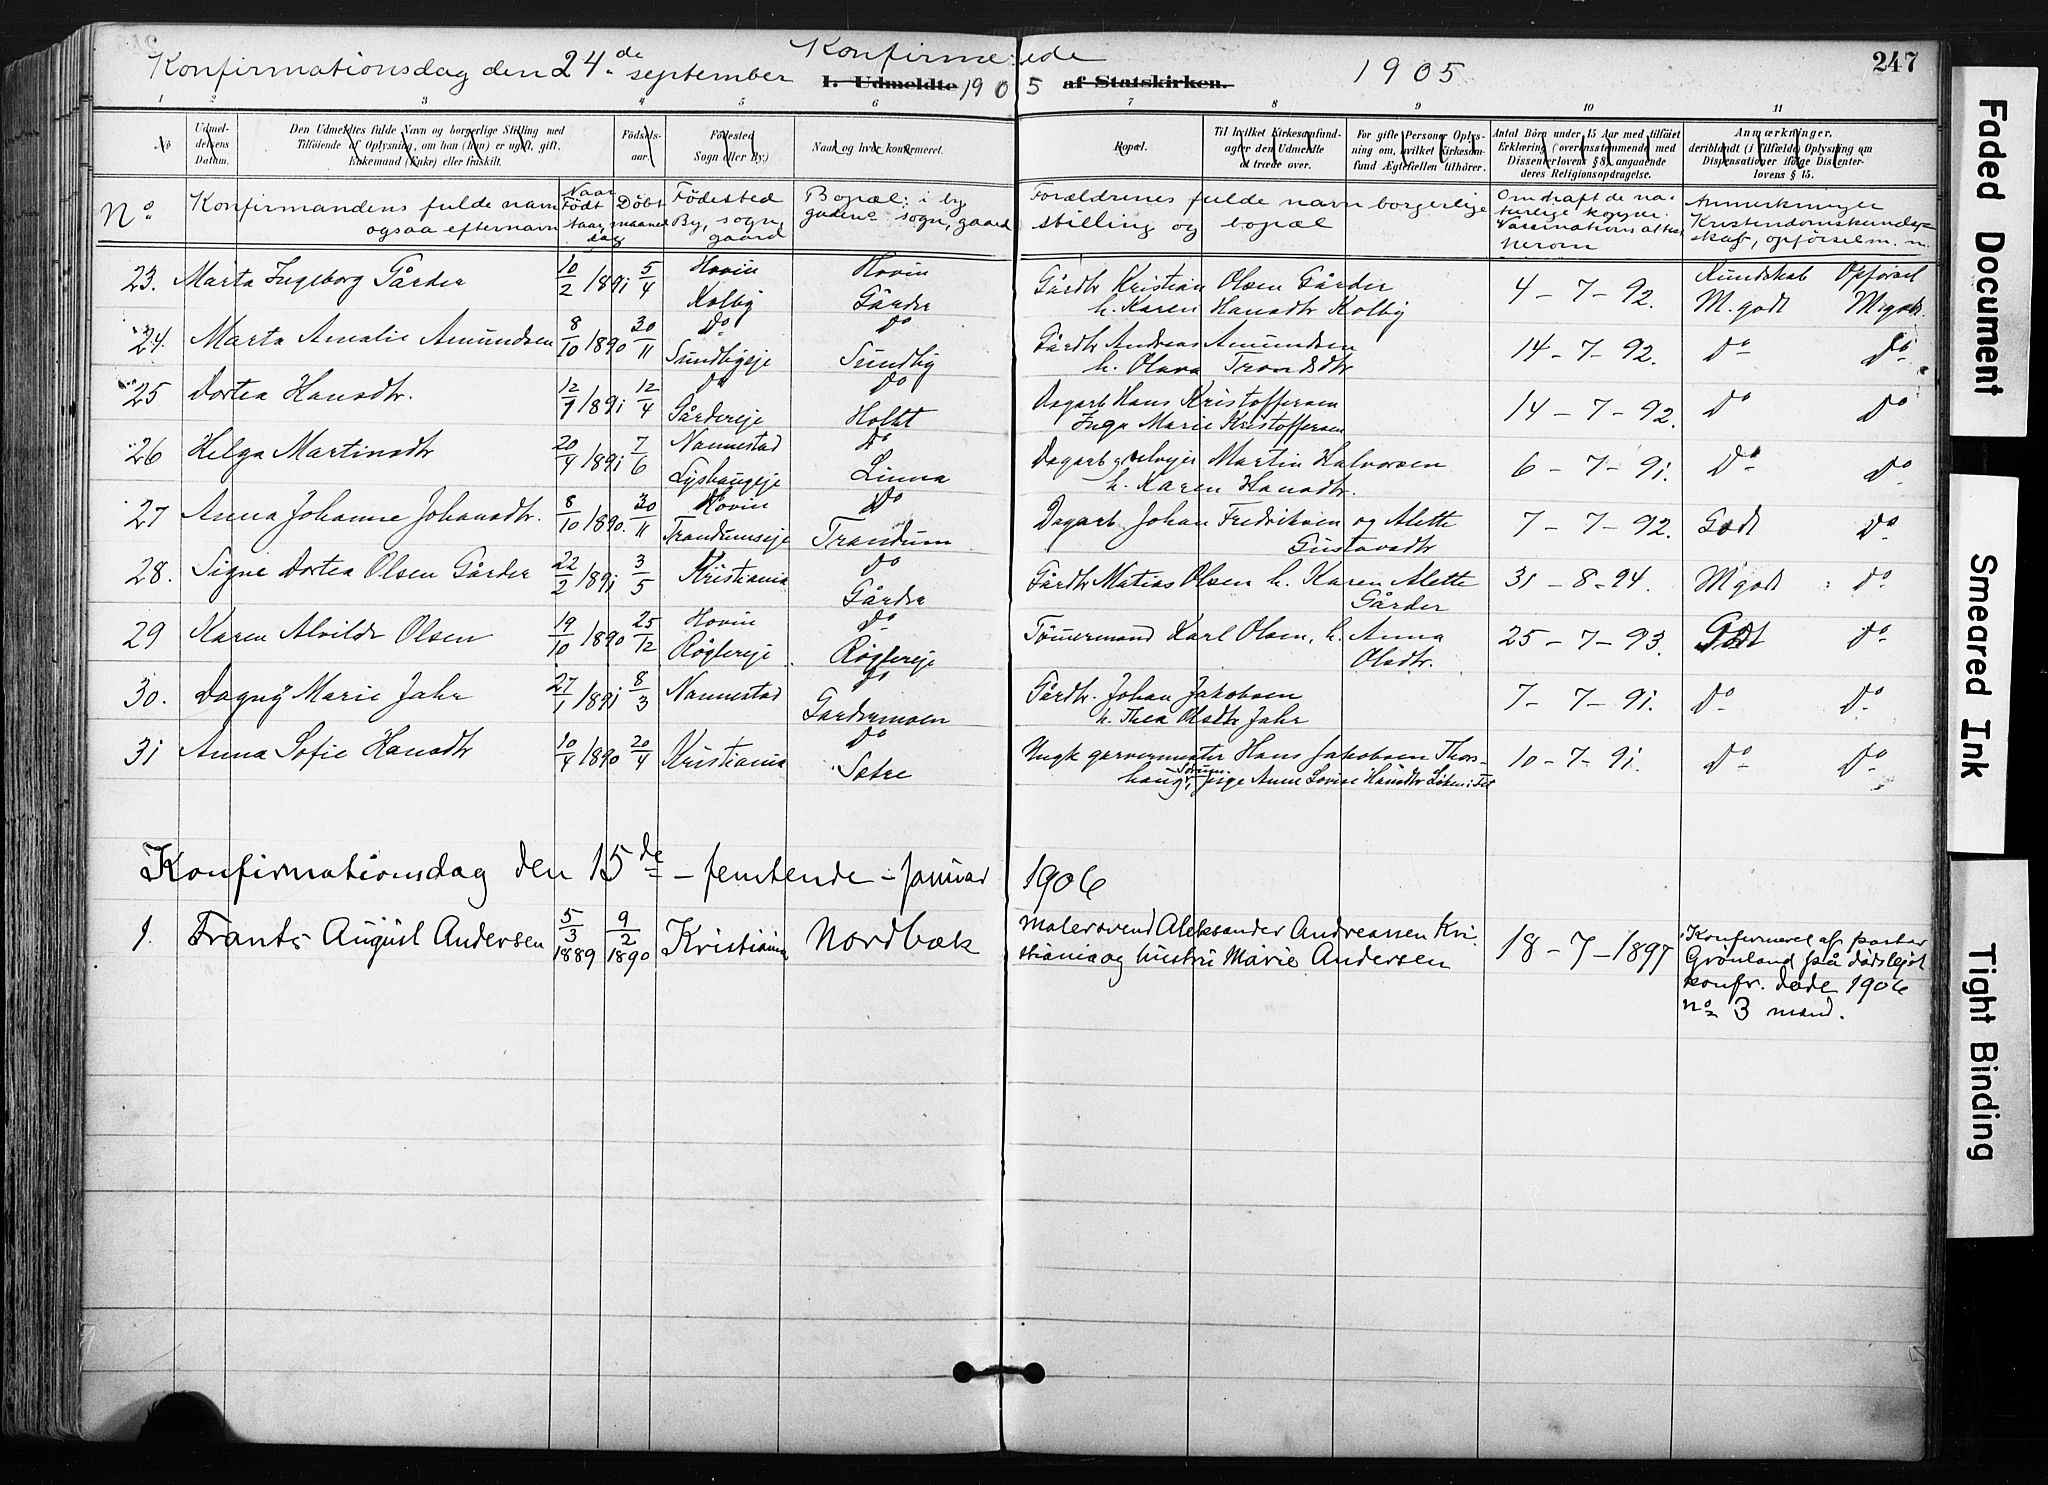 247
Konfirmerede
Konfirmationsdag den 24de september 1905 1905
I. Udmeldte af Statskirken.
1 2 3 4 5 6 7 8 9 10 11
No Udmeldelsens Datum. Den Udmeldtes fulde Navn og borgerlige Stilling med Tilföiende af Oplysning, om han (hun) er ugift, gift. Enkemand (Enke) eller fraskilt. Födsels-aar. Födested Sogn eller By.) Naar og hvor konfirmeret. Bopæl. Til hvilket Kirkesamfund agter den Udmeldte at træde over. For gifte Personer Oplysning om, hvilket Kirkesamfund Ægtefællen tilhörer. Antal Börn under 15 Aar med tilföiet Erklæring (overensstemmende med Dissenterlovens § 8) angaaende deres Religionsopdragelse. Anmærkninger, deriblandt (i Tilfælde) Oplysning om Dispensationer ifölge Dissenterlovens § 15.
No Konfirmandens fulde navn ogsaa efternavn Naar Födt aar maaned dag Döbt Födested By, sogn, gaard Bopæl: i by gaden sogn, gaard Forældrenes fulde navn borgerlige stilling og bopæl Vaccinationsattest Anmerkninger Kristendomskundskab, opförsel m. m.
23. Marta Ingeborg Gårder 10/2 1891 5/4 Hovin Kolby Hovin Gårder Gårdbr Kristian Olsen Gårder h. Karen Hansdtr Kolby 4 - 7 - 92. Kundskab M. godt Opförsel M. godt
24. Marta Amalie Amundsen 8/10 1890 30/11 Do Sundbyeje Do Sundby Gårdbr Andreas Amundsen h. Olava Trondsdtr 14 - 7 - 92. Do Do
25 Dortea Hansdtr. 12/1 1891 12/4 Do Gårdereje Do Holht Dagarb Hans Kristoffersen Inga Marie Kristoffersen 14 - 7 - 92. Do Do
26 Helga Martinsdtr 20/4 1891 7/6 Nannestad Lyshaugeje Do Linna Dagarb selvejer Martin Halvorsen h. Karen Hansdtr. 6 - 7 - 91. Do Do
27 Anna Johanne Johansdtr. 8/10 1890. 30/11 Hovin Trandumseje Do Trandum Dagarb Johan Fredriksen og Alette Gustavsdtr 7 - 7 - 92. Godt Do
28. Signe Dortea Olsen Gårder 22/2 1891 3/5 Kristiania Do Gårder Gårdbr Matias Olsen h. Karen Alette Gårder 31 - 8 - 94. M godt Do
29 Karen Alvilde Olsen 19/10 1890 25/12 Hovin Röglereje Do Röglereje Tömmermand Karl Olsen, h. Anna Olsdtr. 25 - 7 - 93. Godt Do
30. Dagny Marie Jahr 27/1 1891 8/3 Nannestad Do Gardermoen Gårdbr. Johan Jakobsen h. Thea Olsdtr Jahr 7 - 7 - 91. Do Do
31 Anna Sofie Hansdtr 10/4 1890 20/4 Kristiania Do Sætre Ungk garvermester Hans Jakobsen Thorshaug, Sörum pige Anne Lovise Hansdtr Löken i Fet 10 - 7 - 91. Do Do
Konfirmationsdag den 15de - femtende - Januar 1906
1. Frants August Andersen 5/3 1889 9/2 1890 Kristiania Nordbæk Malersvend Aleksander Andreassen Kristiania og hustru Marie Andersen 18 - 7 - 1897 Konfirmeret af pastor Grönland på dödslejet konfr. döde 1906 no 3 mand.
Faded Document
Smeared Ink
Tight Binding